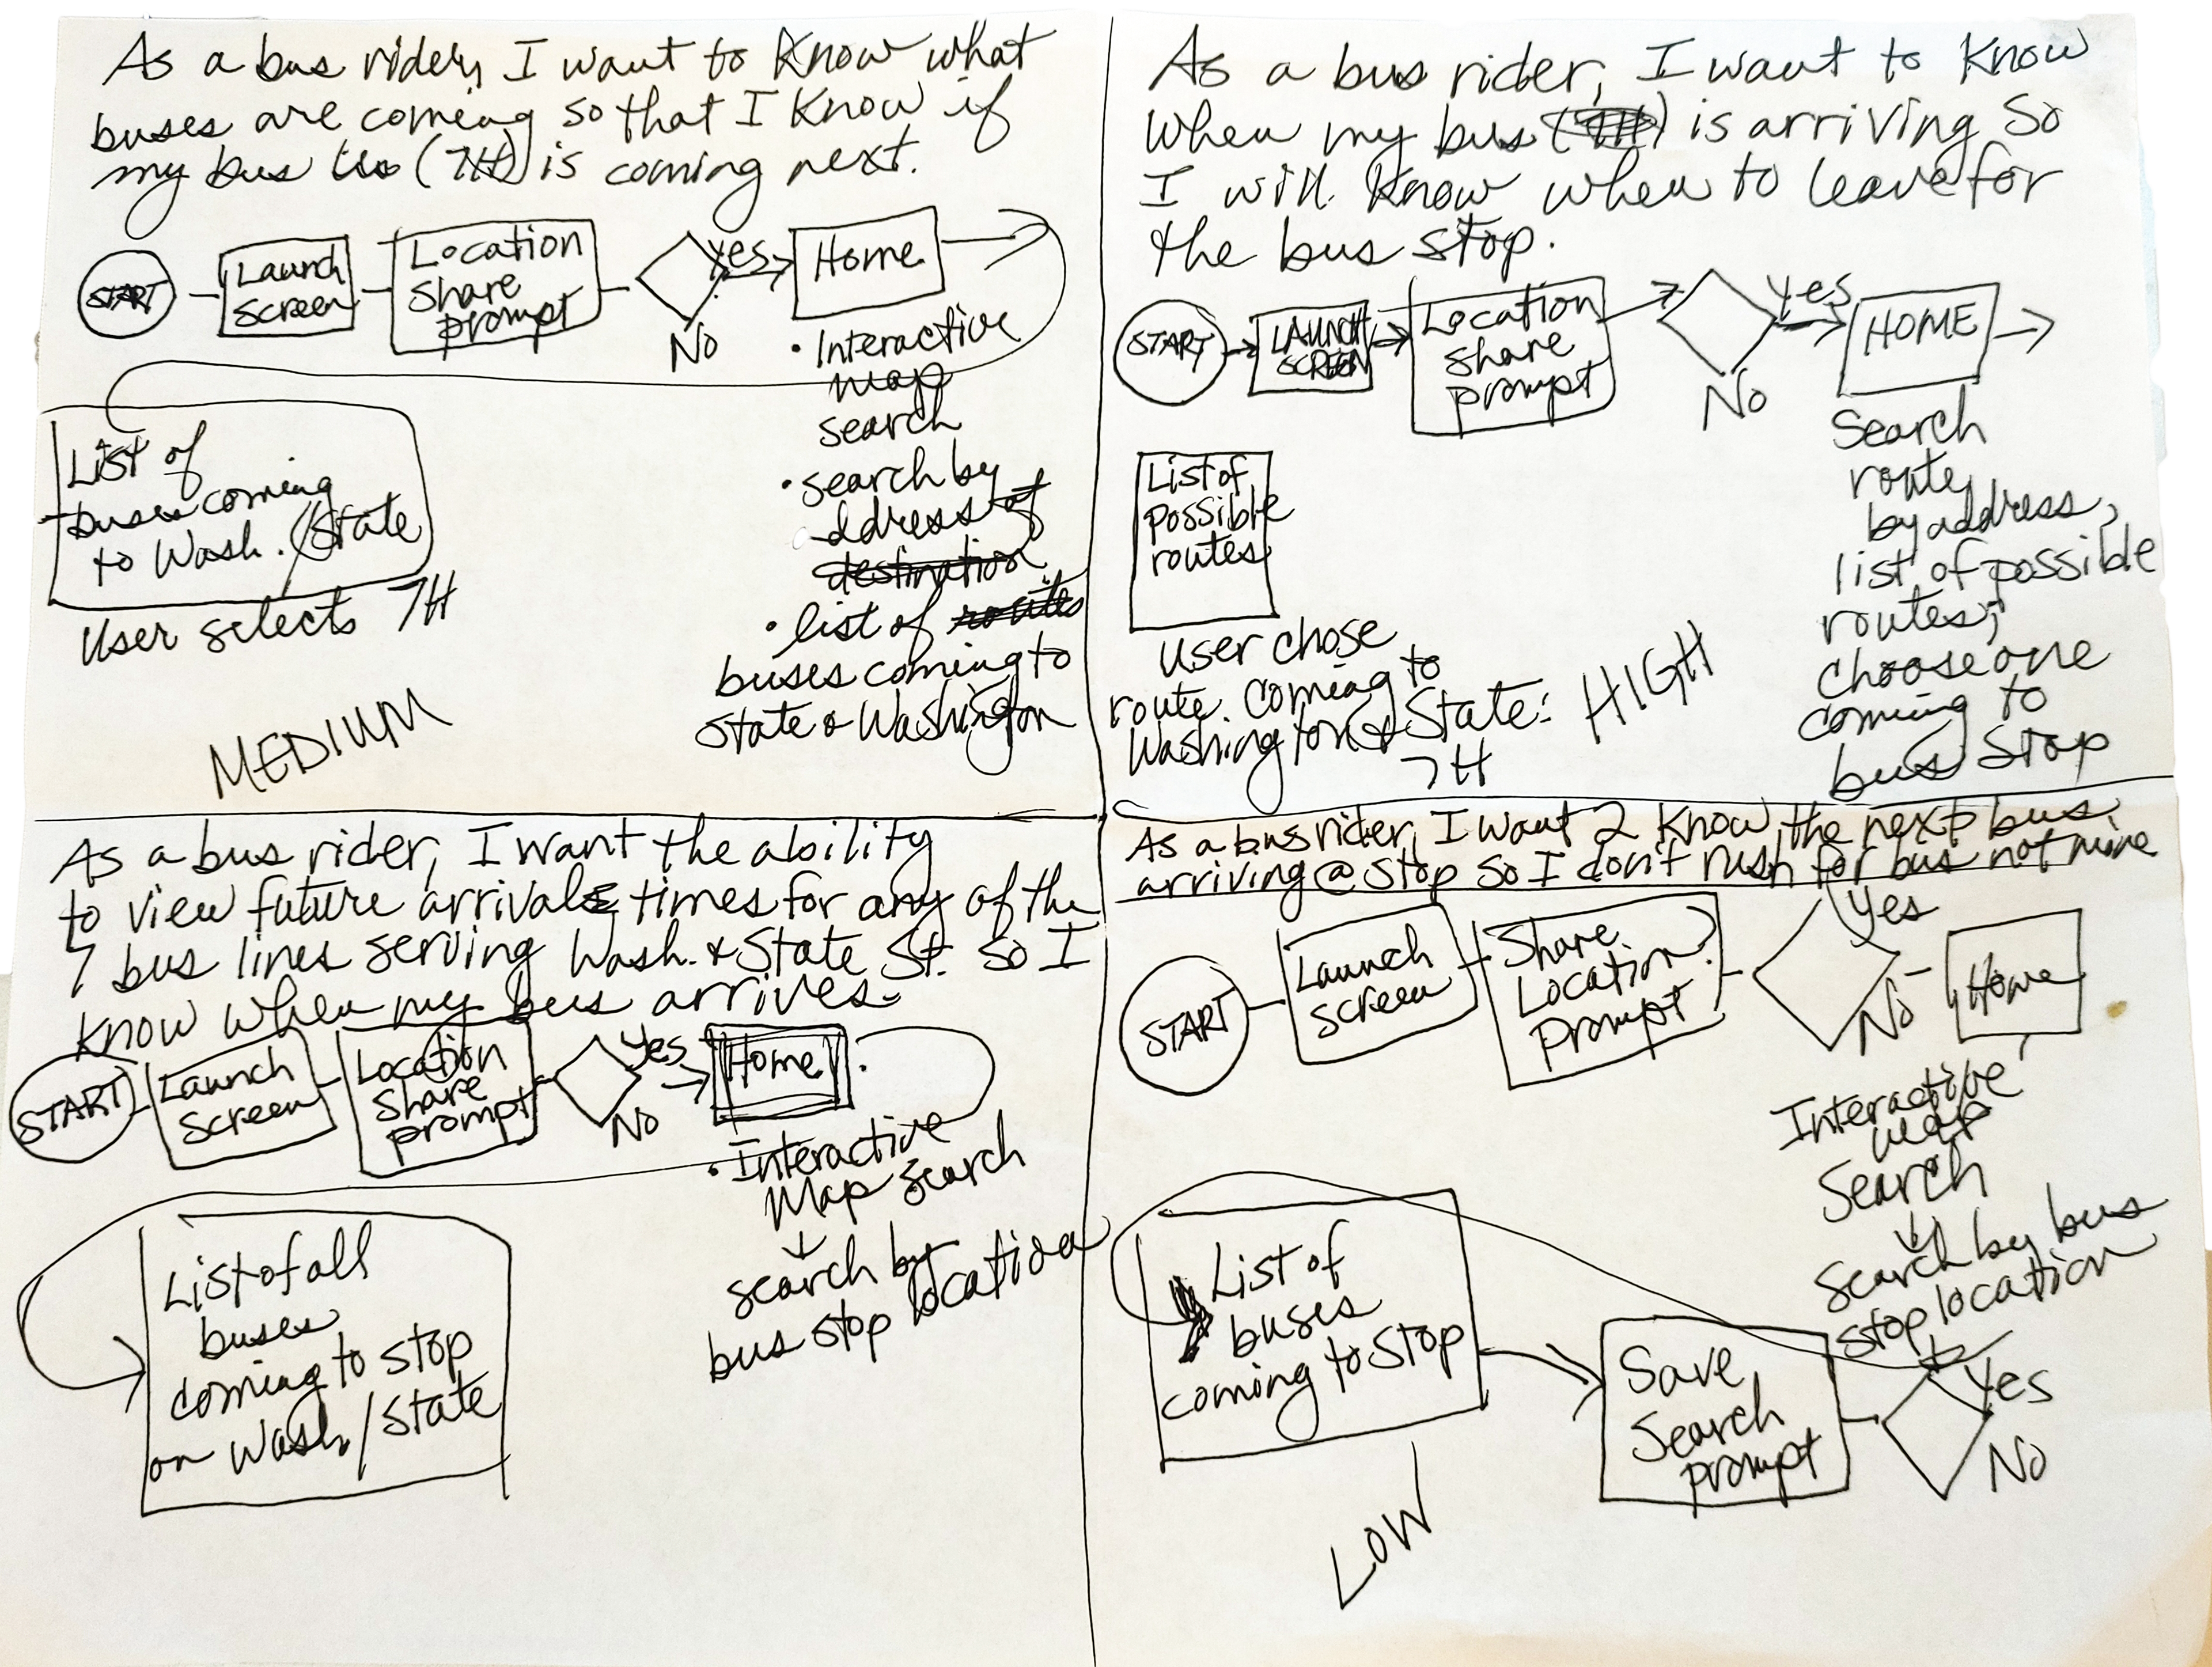 As a bus rider, I want to know what
buses are coming so that I know if
my bus (7H) is coming next.
START
Launch
Screen
Location
Share
prompt
Yes
No
Home
• Interactive
map
search
• search by
address of
destination
• list of routes
buses coming to
State & Washington
List of
buses coming
to Wash. / State
User selects 7H
MEDIUM
As a bus rider, I want to know
when my bus (7H) is arriving so
I will know when to leave for
the bus stop.
START
LAUNCH
SCREEN
Location
share
prompt
Yes
No
HOME
Search
route
by address,
list of possible
routes;
choose one
coming to
bus stop
List of
possible
routes
User chose
route coming to
Washington & State:
7H
HIGH
As a bus rider, I want the ability
to view future arrivals times for any of the
7 bus lines serving Wash. & State St. so I
know when my bus arrives.
START
Launch
Screen
Location
Share
prompt
Yes
No
Home
• Interactive
Map Search
search by
bus stop location
List of all
buses
coming to stop
on Wash/State
As a bus rider, I want 2 know the next bus
arriving @ stop so I don't rush for bus not mine
START
Launch
Screen
Share
Location?
Prompt
Yes
No
Home
Interactive
map
Search
Search by bus
stop location
List of
buses
coming to stop
Save
Search
prompt
Yes
No
LOW